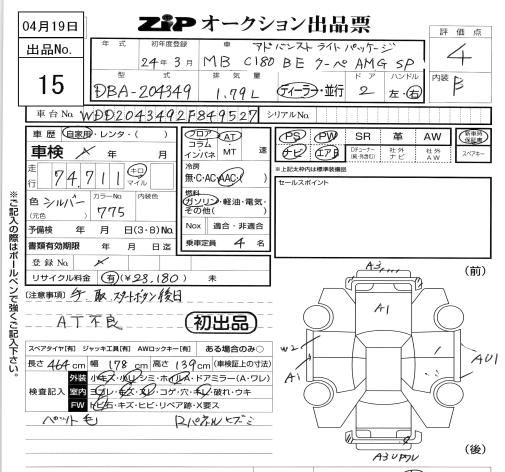 04月19日
ZIP オークション出品票
出品No.
15
評価点
4
内装
B
年式
初年度登録
24年3月
車
アドバンスト ライト パッケージ
MB C180 BE クーペ AMG SP
型式
DBA-204349
排気量
1.79L
ディーラー・並行
ドア
2
ハンドル
左・右
車台No.
WDD2043492F849527
シリアルNo.
車歴
自家用・レンタ・( )
車検
年 月
走行
74,711
キロ
マイル
色
シルバー
(元色 )
カラーNo.
775
内装色
予備検 年 月 日(3・8)No.
書類有効期限 年 月 日迄
登録No.
リサイクル料金
有(¥23,180) 未
フロア
コラム
インパネ
AT
・
MT
速
冷房
無・C・AC・AAC・( )
燃料
ガソリン・軽油・電気・
その他( )
Nox
適合・非適合
乗車定員
4 名
PS
PW
SR
革
AW
新車時
保証書
ナビ
エアB
社外
ナビ
社外
AW
スペアキー
※上記太枠内は標準装備品
セールスポイント
(注意事項)
スタートボタン後日
AT不良
初出品
スペアタイヤ[有] ジャッキ工具[有] AWロックキー[有] ある場合のみ○
長さ 464 cm 幅 178 cm 高さ 139 cm (車検証上の寸法)
検査記入
外装
室内
FW
トビ石・キズ・ヒビ・リペア跡・X要ス
ペット毛
※ご記入の際はボールペンで強くご記入下さい。
(前)
A3
A1
W2
A1
AU1
(後)